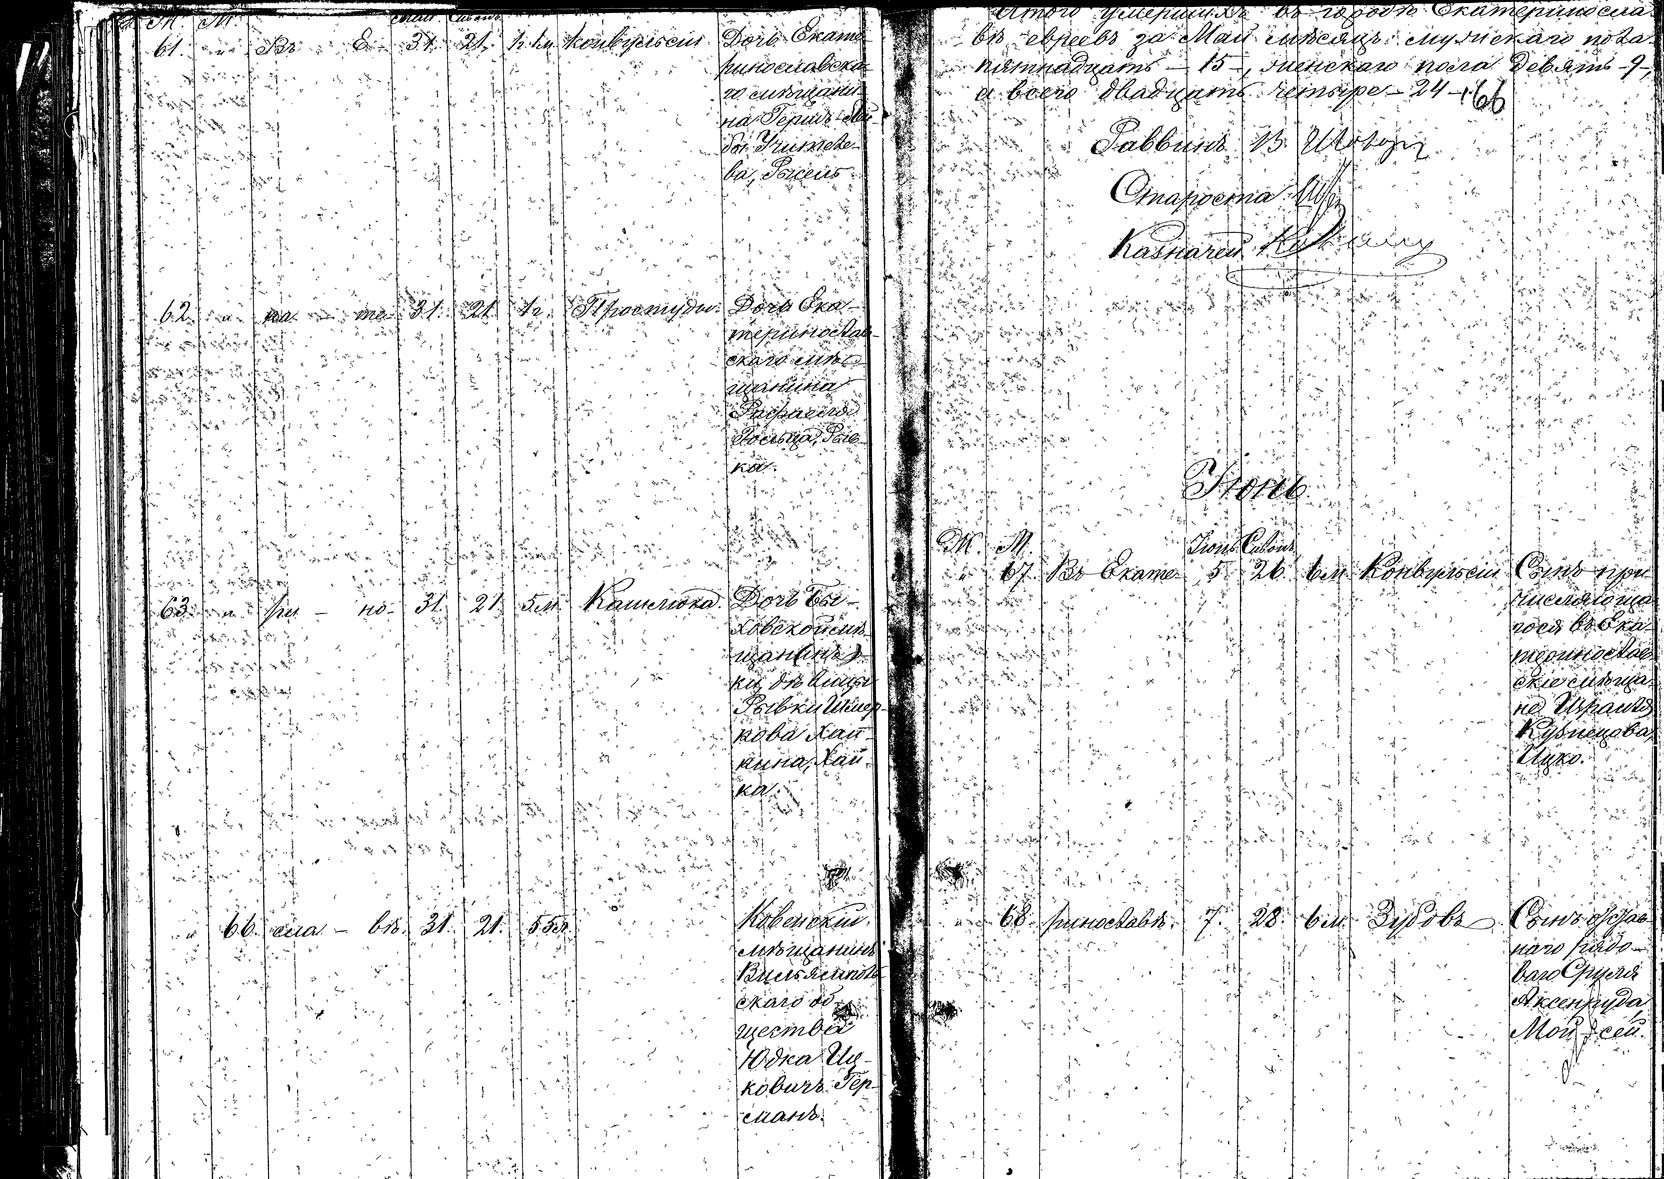 Ж. М. Май Сивонъ
61. " Въ Е 31. 21. Конвульсіи Дочь Екате-
ринославска-
го мѣщани-
на Гершъ Лей-
бы Учителе-
ва, Рысель
62. " ка - те- 31. 21. 1 г. Простуды. Дочь Ека-
теринослав-
скаго мѣ-
щанина
Рафаила
Гольца, Рив-
ка.
63. " ри - но- 31. 21. 5 м. Кашлюка. Дочь Бы-
ховской мѣ-
щан
ки, дѣвицы
Рывки Шмер-
кова Хай-
кина, Хай-
ка.
" 66. сла - вѣ. 31. 21. 55 л. Ковенскій
мѣщанинъ
Вильямполь-
скаго об-
щества
Юдка Иц-
ковичъ Гер-
манъ.
Итого умершихъ въ городѣ Екатериносла-
вѣ евреевъ за Май мѣсяцъ: мужскаго пола
пятнадцать - 15 -, женскаго пола девять - 9 -,
а всего двадцать четыре - 24 -. 66
Раввинъ В.
Староста
Казначей
Іюнь
Ж. М. Іюнь Сивонъ
" 67. Въ Екате- 5. 26. 6 м. Конвульсіи Сынъ при-
числяюща-
гося въ Ека-
теринослав-
скіе мѣща-
не Израиля
Кузнецова,
Ицко.
" 68. ринославѣ. 7. 28. 6 м. Зубовъ Сынъ отстав-
наго рядо-
ваго Сруля
Аксенруда,
Мой-сей.